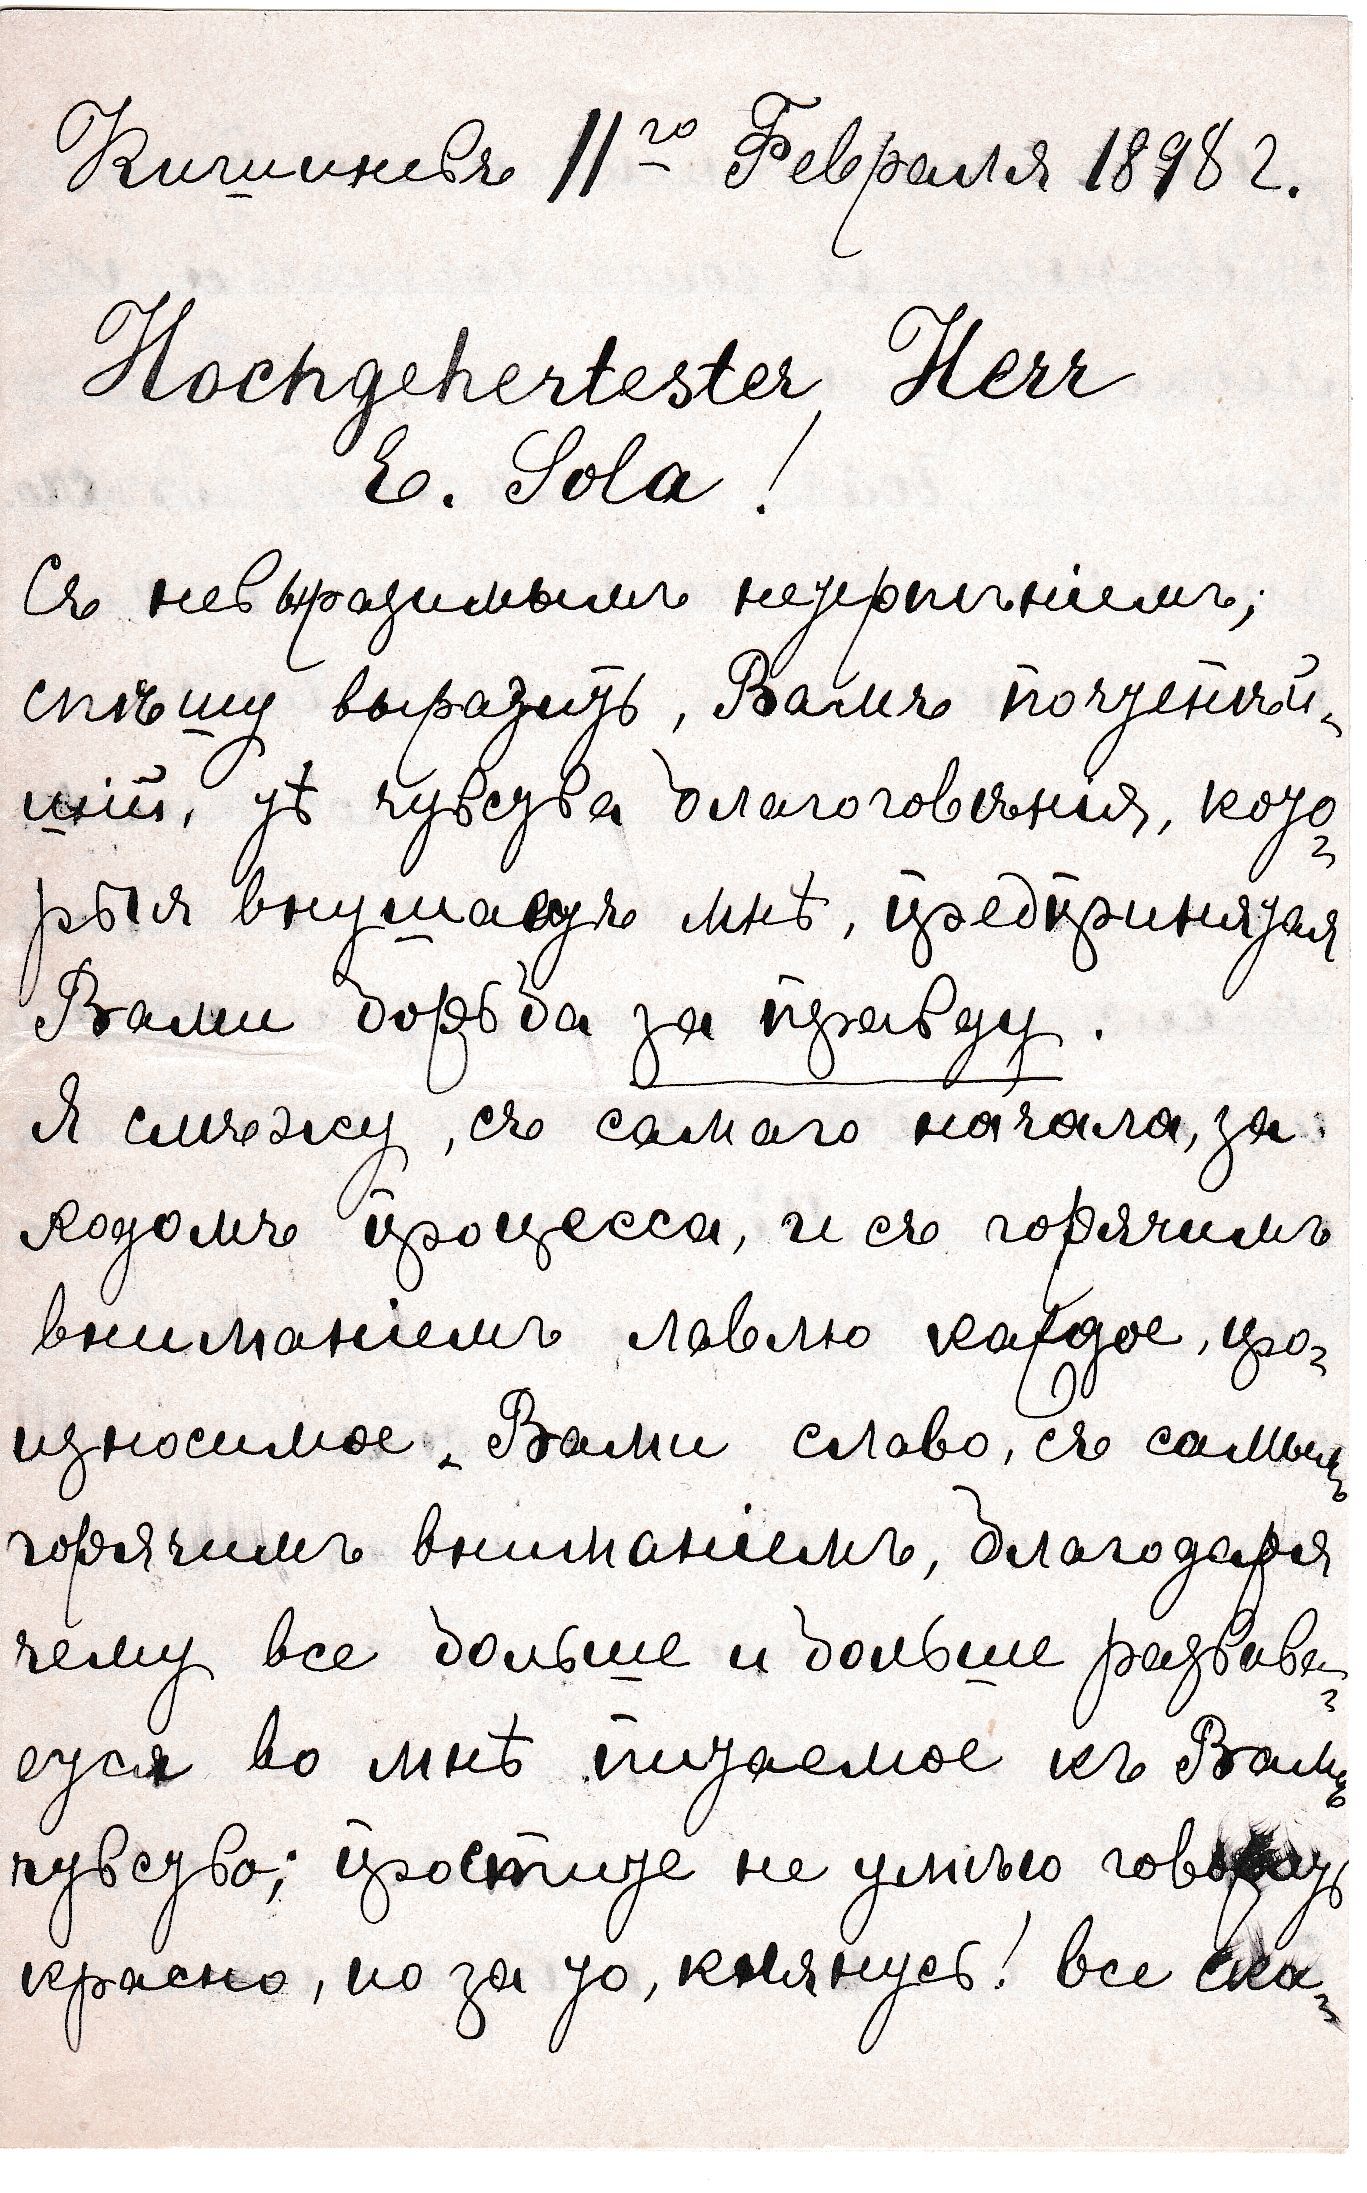 Кишиневъ 11го Февраля 1898 г.
Hochgehertester Herr
E. Sola!
Съ невыразимымъ нетерпѣніемъ,
спѣшу выразить, Вамъ почтеннѣй-
шій, тѣ чувства благоговѣнія, кото-
рыя внушаетъ мнѣ, предпринятая
Вами борьба за правду.
Я слѣжу, съ самаго начала, за
ходомъ процесса, и съ горячимъ
вниманіемъ ловлю каждое, про-
износимое Вами слово, съ самымъ
горячимъ вниманіемъ, благодаря
чему все больше и больше развива-
ется во мнѣ питаемое къ Вамъ
чувство; простите не умѣю говорить
красно, но за то, клянусь! все ска-